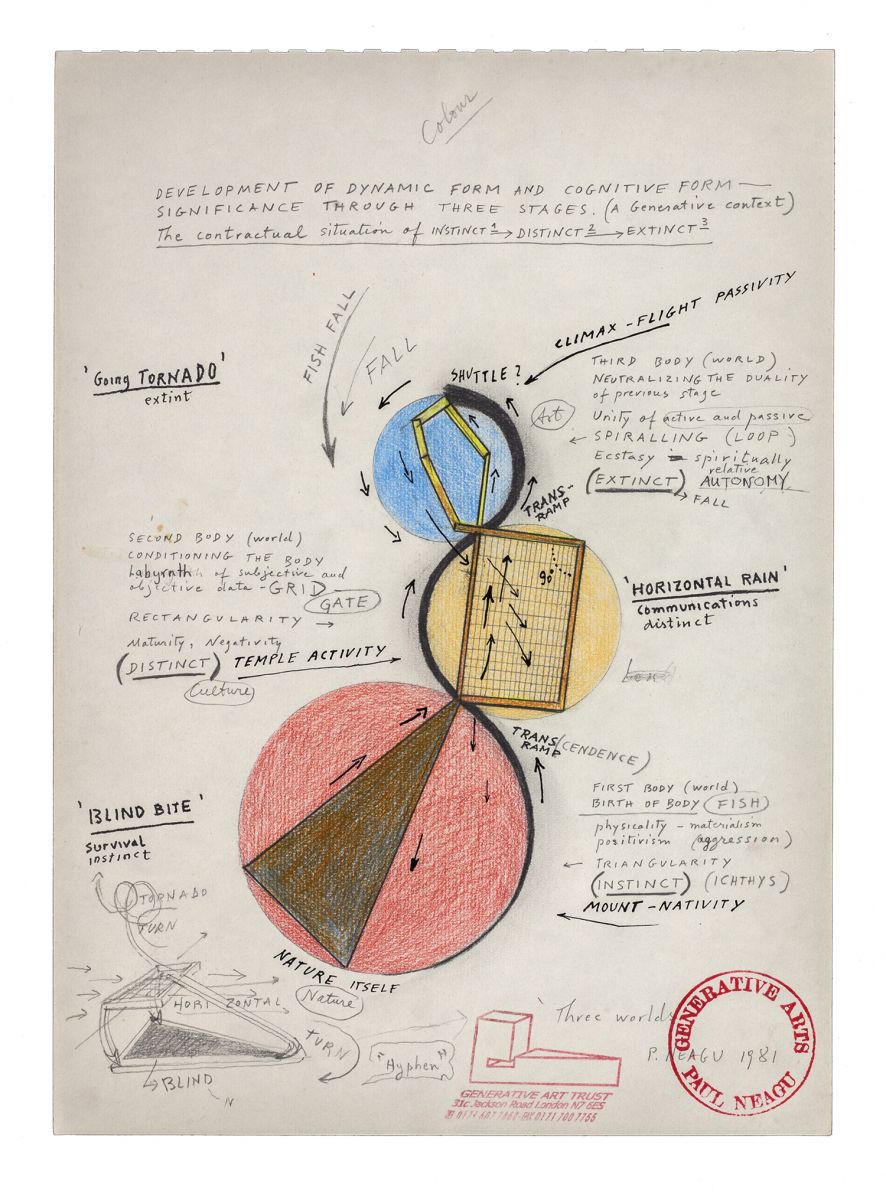 Colour
DEVELOPMENT OF DYNAMIC FORM AND COGNITIVE FORM —
SIGNIFICANCE THROUGH THREE STAGES. (A Generative context)
The contractual situation of INSTINCT 1 → DISTINCT 2 → EXTINCT 3
CLIMAX - FLIGHT PASSIVITY
FISH FALL
FALL
SHUTTLE?
'Going TORNADO'
extint
THIRD BODY (WORLD)
NEUTRALIZING THE DUALITY
of previous stage
Art
Unity of active and passive
← SPIRALLING (LOOP)
Ecstasy spiritually
relative
(EXTINCT) AUTONOMY
→ FALL
TRANS-
RAMP
SECOND BODY (world)
CONDITIONING THE BODY
Labyrinth of subjective and
objective data - GRID
GATE
RECTANGULARITY →
Maturity, Negativity
(DISTINCT) TEMPLE ACTIVITY
Culture
90°
'HORIZONTAL RAIN'
communications
distinct
TRANS(CENDENCE)
RAMP
'BLIND BITE'
survival
instinct
FIRST BODY (world)
BIRTH OF BODY (FISH)
physicality - materialism
positivism (aggression)
← TRIANGULARITY
(INSTINCT) (ICHTHYS)
MOUNT-NATIVITY
NATURE ITSELF
Nature
TORNADO
TURN
HORIZONTAL
TURN
BLIND
"Hyphen"
'Three worlds
P. NEAGU 1981
GENERATIVE ARTS
PAUL NEAGU
GENERATIVE ART TRUST
31c Jackson Road London N7 6ES